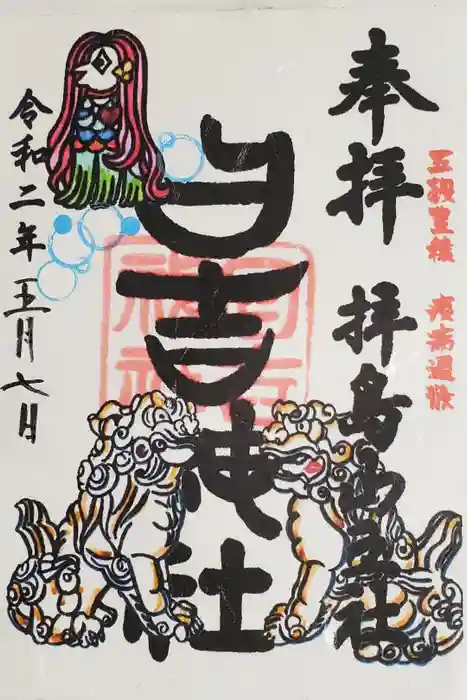 五穀豊穣 疫病退散
奉拝 拝島山王社
日吉神社
令和二年五月七日